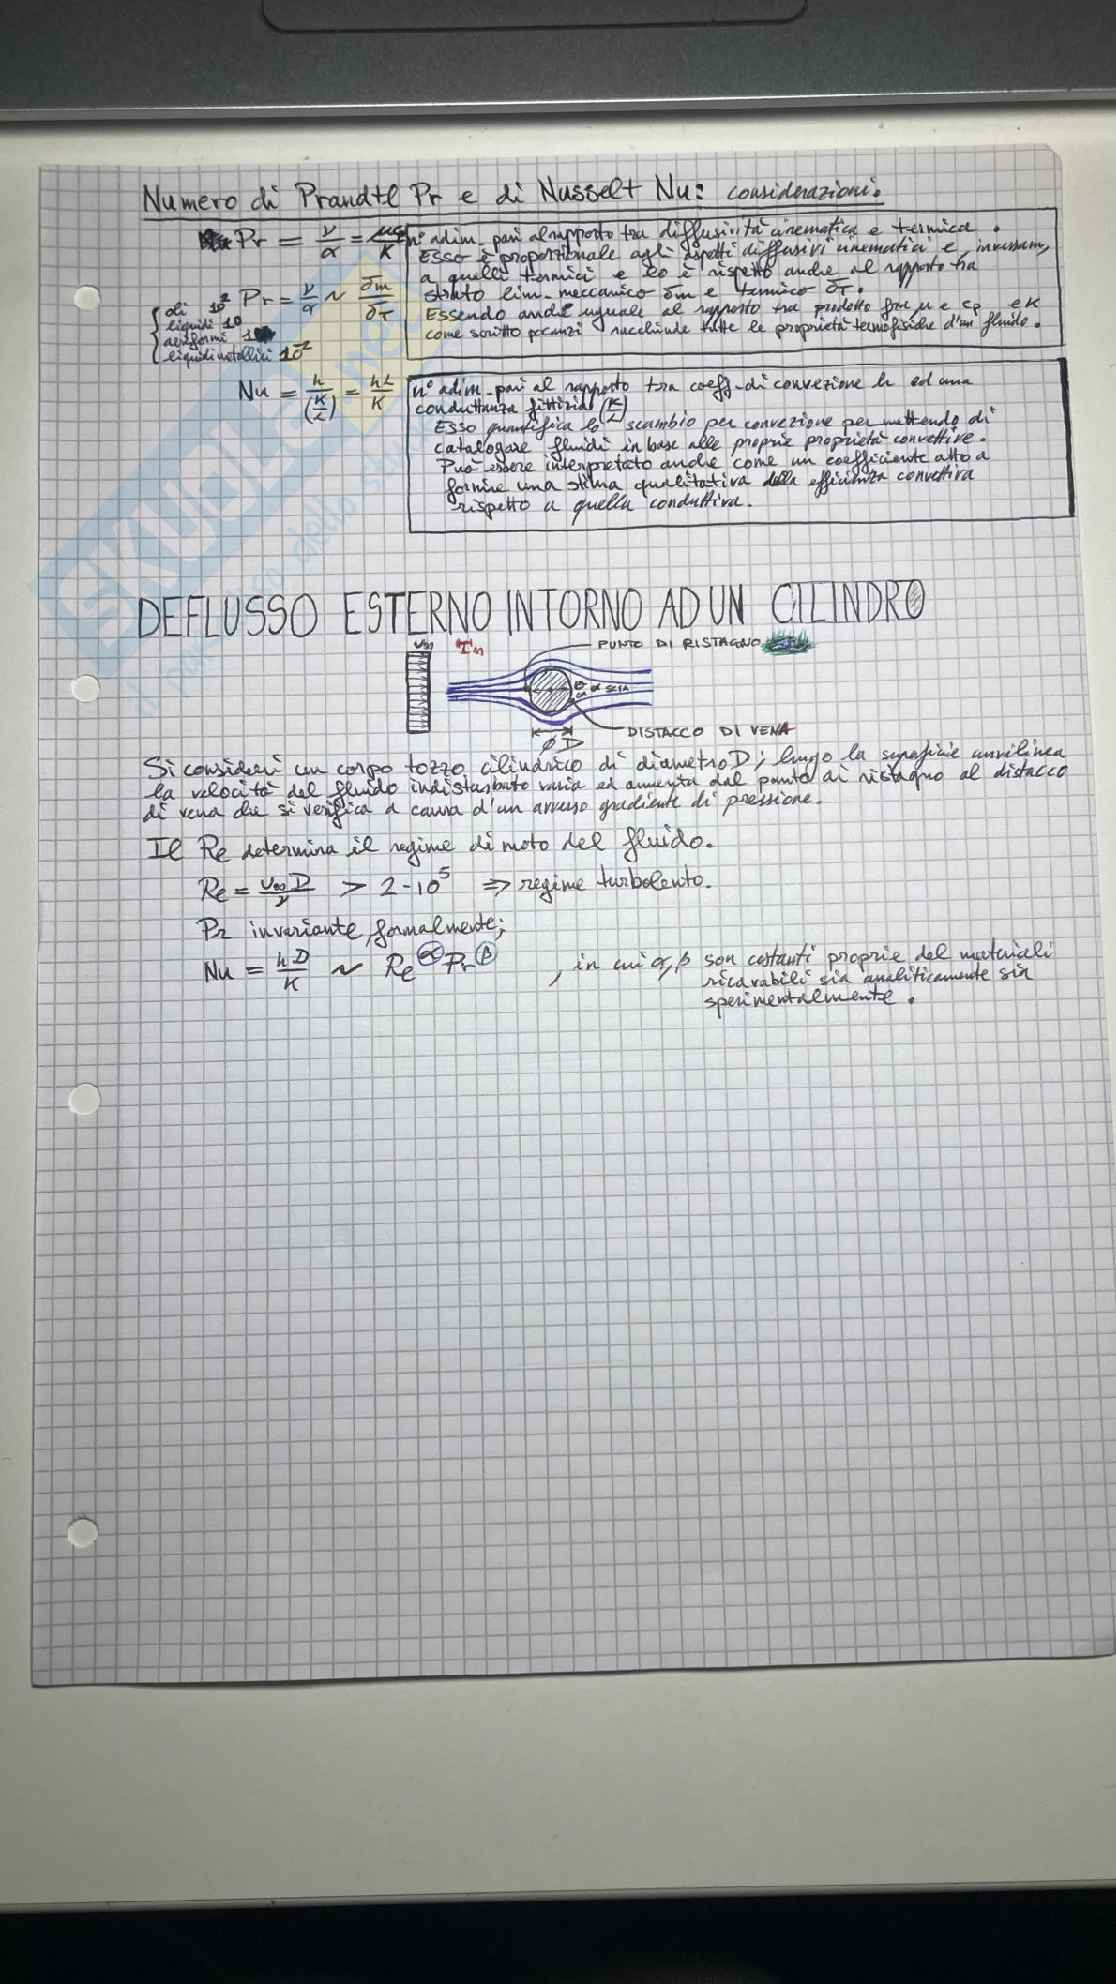 Numero di Prandtl Pr e di Nusselt Nu: considerazioni.
Pr = ν/α = μcp/K
n° adim. pari al rapporto tra diffusività cinematica e termica.
Esso è proporzionale agli aspetti diffusivi cinematici e, inversam,
a quelli termici e lo è rispetto anche al rapporto tra
strato lim. meccanico δm e termico δT.
Essendo anche uguale al rapporto tra prodotto fra μ e cp e K
come scritto pocanzi racchiude tutte le proprietà termofisiche d'un fluido.
Pr = ν/α ~ δm/δT
oli 10²
liquidi 10
aeriformi 1
liquidi metallici 10⁻²
Nu = h/(K/L) = hL/K
n° adim. pari al rapporto tra coeff. di convezione h ed una
conduttanza fittizia (K/L)
Esso quantifica lo scambio per convezione permettendo di
catalogare fluidi in base alle proprie proprietà convettive.
Può essere interpretato anche come un coefficiente atto a
fornire una stima qualitativa della efficienza convettiva
rispetto a quella conduttiva.
SKUOLA.net
DEFLUSSO ESTERNO INTORNO AD UN CILINDRO
PUNTO DI RISTAGNO
SCIA
DISTACCO DI VENA
φD
Si consideri un corpo tozzo cilindrico di diametro D; lungo la superficie curvilinea
la velocità del fluido indisturbato varia ed aumenta dal punto di ristagno al distacco
di vena che si verifica a causa d'un avverso gradiente di pressione.
Il Re determina il regime di moto del fluido.
Re = v∞D/ν > 2·10⁵ ⇒ regime turbolento.
Pr invariante formalmente;
Nu = hD/K ~ Re^α Pr^β , in cui α,β son costanti proprie del materiali
ricavabili sia analiticamente sia
sperimentalmente.